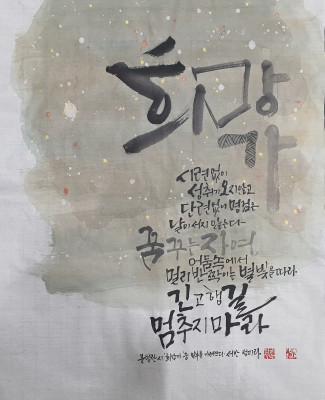 희망가
시련없이
성취가 오지않고
단련없이 명검은
날이 서지 않는다
꿈꾸는 자여
어둠속에서
멀리 반짝이는 별빛을 따라
긴 고행길
멈추지 마라
문병란 시 희망가 중